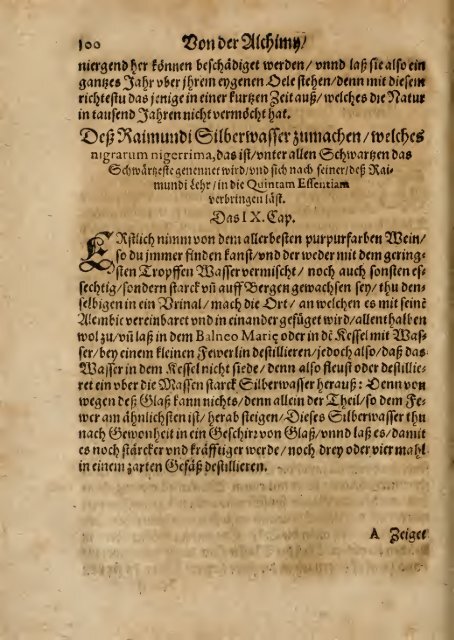 100 Von der Alchimy/
niergend her können beschädiget werden/ vnnd laß sie also ein
gantzes Jahr vber jhrem eygenen Oele stehen/ denn mit diesem
richtestu das jenige in einer kurtzen Zeit auß/ welches die Natur
in tausend Jahren nicht vermöcht hat.
Deß Raimundi Silberwasser zumachen/ welches
nigrarum nigerrima, das ist/ vnter allen Schwartzen das
Schwärtzeste genennet wird/ vnd sich nach seiner/ deß Rai-
mundi Lehr/ in die Quintam Essentiam
verbringen läst.
Das IX. Cap.
ERstlich nimm von dem allerbesten purpurfarben Wein/
so du jmmer finden kanst/ vnd der weder mit dem gering-
sten Tropffen Wasser vermischt/ noch auch sonsten es-
sechtig/ sondern starck vñ auff Bergen gewachsen sey/ thu den-
selbigen in ein Vrinal/ mach die Ort/ an welchen es mit seinē
Alembic vereinbaret vnd in einander gefüget wird/ allenthalben
wol zu/ vñ laß in dem Balneo Marię oder in dē Kessel mit Was-
ser/ bey einem kleinen Fewerlin destillieren/ jedoch also/ daß das
Wasser in dem Kessel nicht siede/ denn also fleust oder destillie-
ret ein vber die Massen starck Silberwasser herauß: Denn von
wegen deß Glaß kan nichts/ denn allein der Theil/ so dem Fe-
wer am ähnlichsten ist/ herab steigen/ Dieses Silberwasser thu
nach Gewonheit in ein Geschirr von Glaß/ vnnd laß es/ damit
es noch stärcker vnd kräfftiger werde/ noch drey oder vier mahl
in einem zarten Gefäß destillieren.
A Zeiget